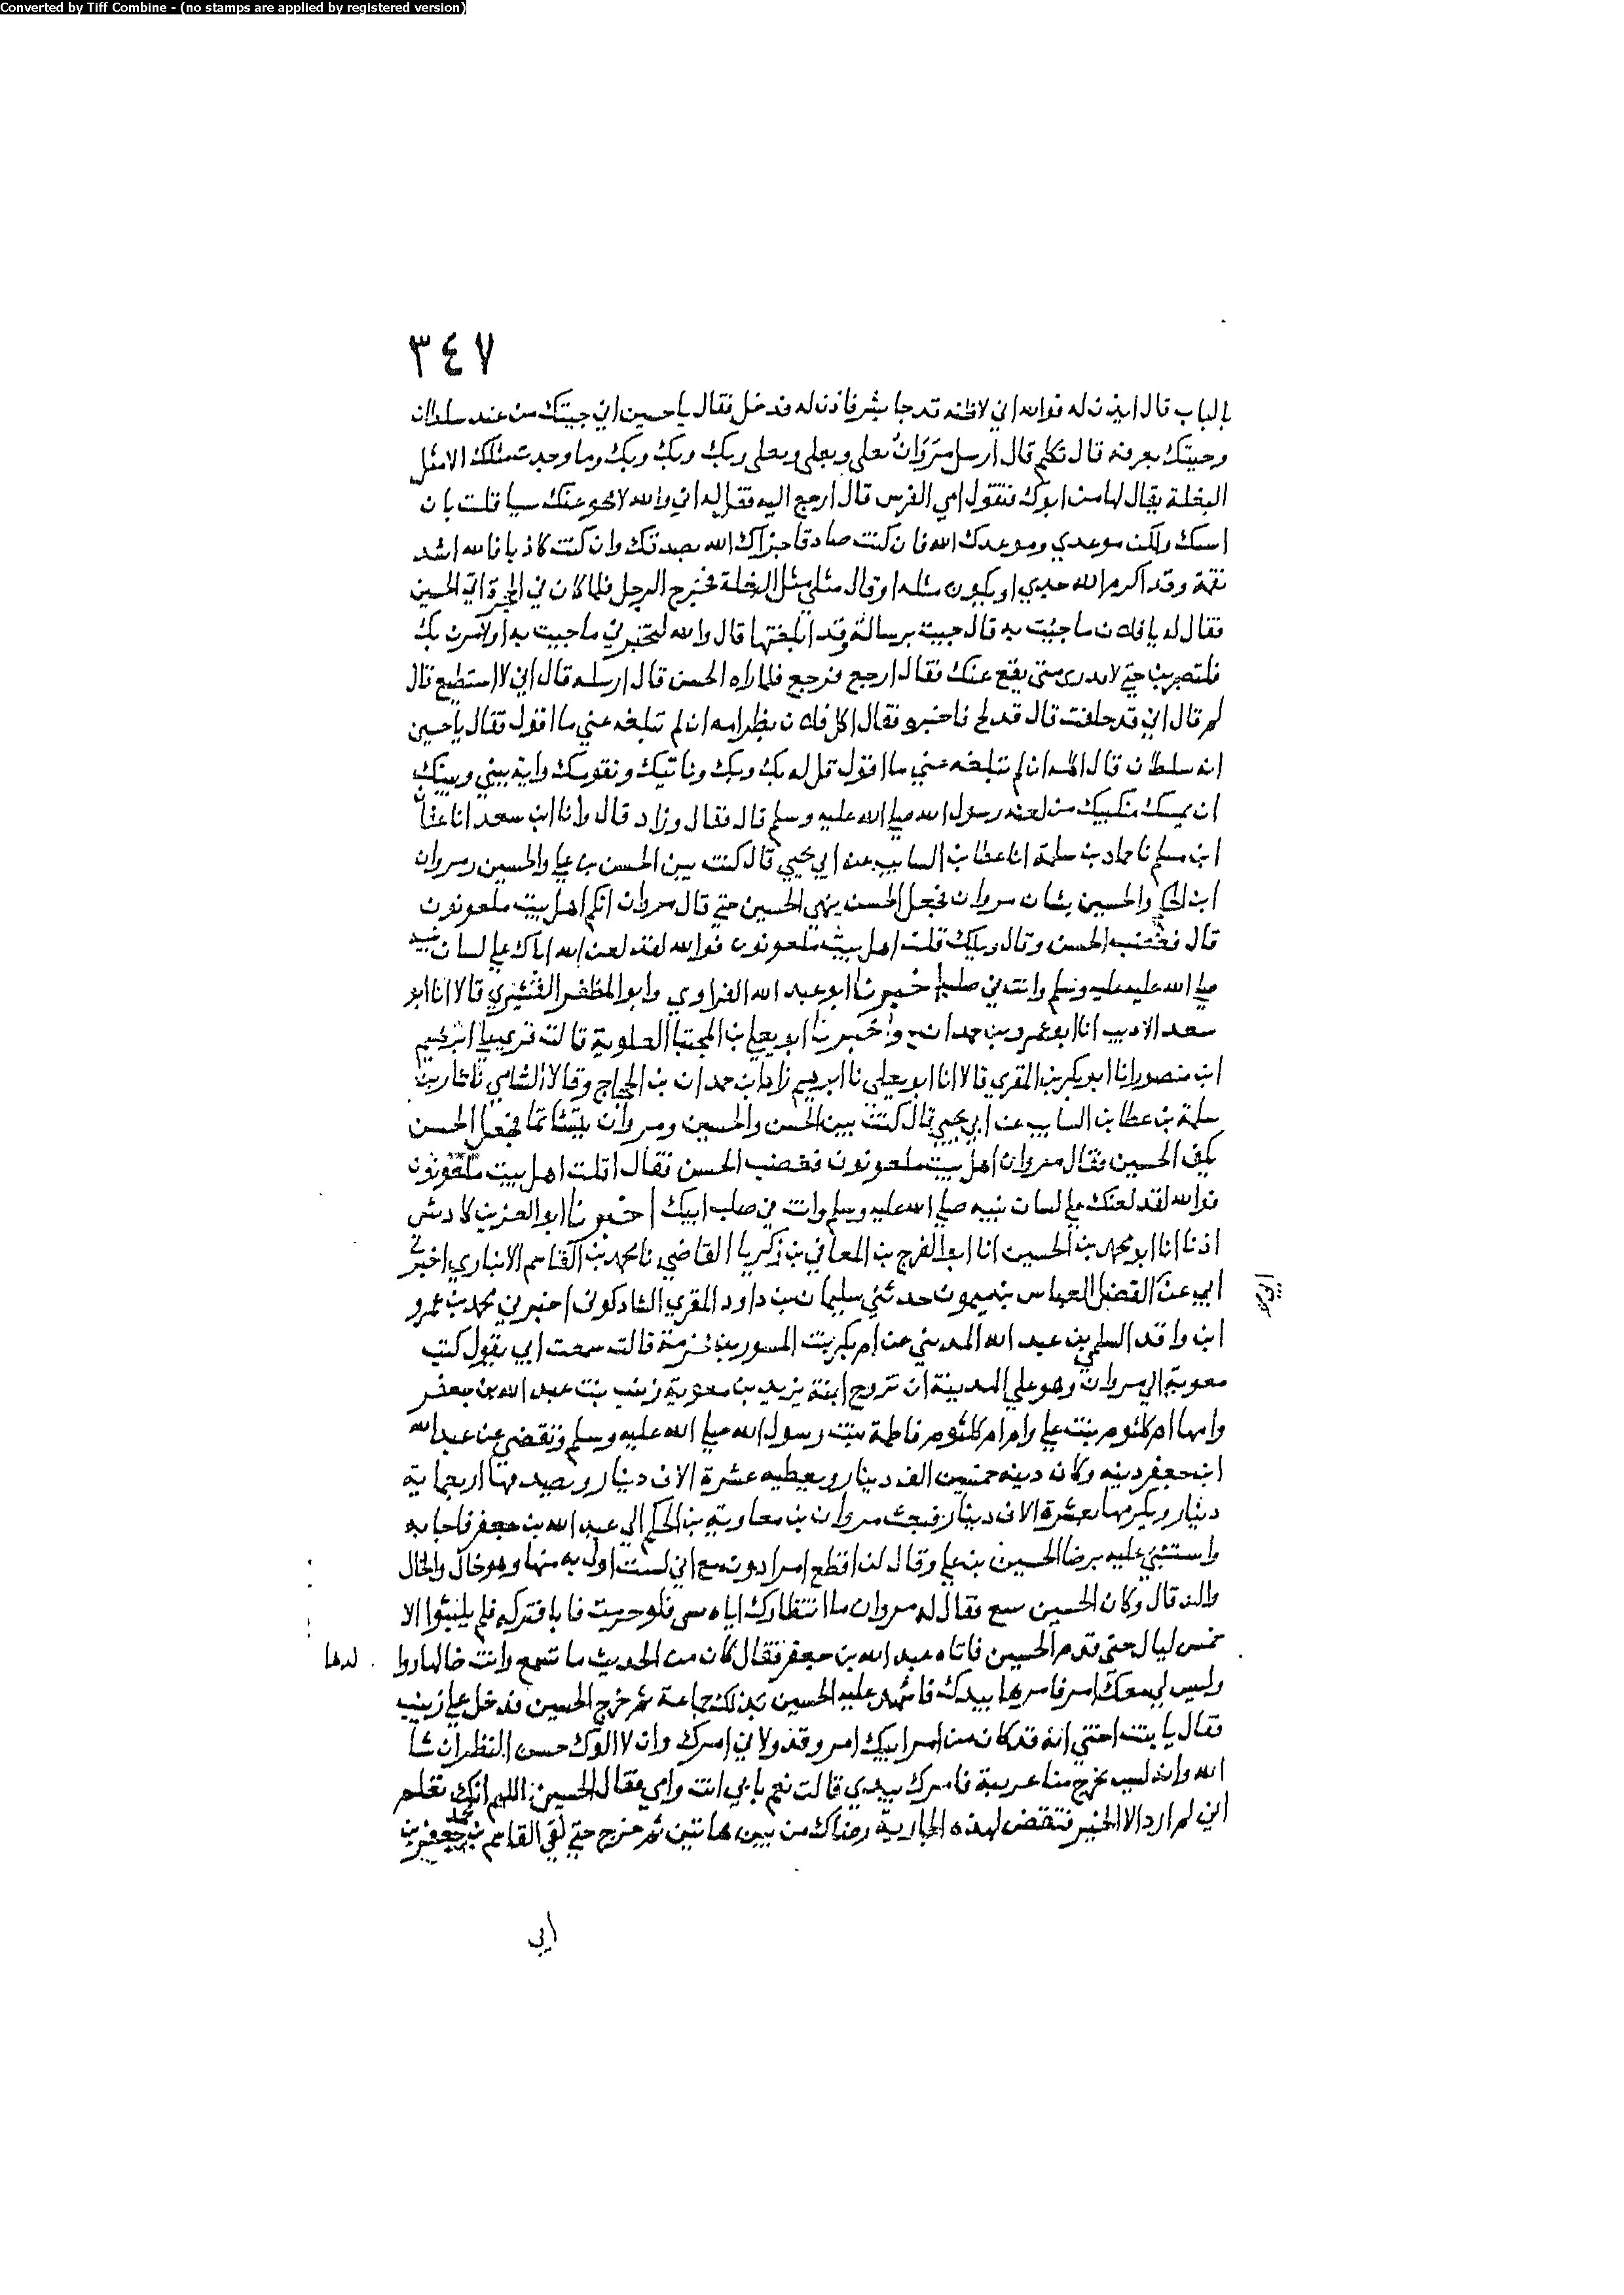 Converted by Tiff Combine - (no stamps are applied by registered version)
٣٤٧
بالباب قال ايذن له فوالله اني لاظنه قد جا بشر فاذن له فدخل فقال يا حسين اني جيتك من عند سلطان
وجيتك بعرفه قال تكلم قال ارسل مروان بعلي وبعلي وبعلي وبك وبك وبك وما وجدت مثلك الا مثل
البغلة يقال لها من ابوك فتقول امي الفرس قال ارجع اليه فقل له اني والله لا امحو عنك سيا قلت بان
اسبك ولكن موعدي وموعدك الله فان كنت صادقا جزاك الله بصدقك وان كنت كاذبا فالله اشد
نقمة وقد اكرم الله جدي ان يكون مثله او قال مثلي مثل البغلة فخرج الرجل فلما كان في الحجرة لقي الحسين
فقال له يا فلان ما جيت به قال جيت برسالة وقد ابلغتها قال والله لتخبرني ما جيت به او لامرن بك
فلتضربن حتى لا تدري متى يقع عنك فقال ارجع فرجع فلما راه الحسن قال ارسله قال اني لا استطيع قال
لم قال اني قد حلفت قال قد لج فاخبره فقال اكل فلان بظر امه ان لم تبلغه عني ما اقول فقال يا حسين
انه سلطان قال اكله ان لم تبلغه عني ما اقول قل له بك وبك وبابيك وبقومك واية بيني وبينك
ان يمسك منكبيك من لعنه رسول الله صلى الله عليه وسلم قال فقال وزاد قال وانا ابن سعد انا عفان
ابن مسلم نا حماد بن سلمة انا عطا بن السايب عن ابي يحيى قال كنت بين الحسن بن علي والحسين ومروان
ابن الحكم والحسين يساب مروان فجعل الحسن ينهى الحسين حتى قال مروان انكم اهل بيت ملعونون
قال فغضب الحسن وقال ويلك قلت اهل بيت ملعونون فوالله لقد لعن الله اباك على لسان نبيه
صلى الله عليه وسلم وانت في صلبه اخبرنا ابو عبد الله الفراوي وابو المظفر القشيري قالا انا ابو
سعد الاديب انا ابو عمرو بن حمدان ح واخبرتنا ام المجتبا العلوية قالت قري علي ابرهيم
ابن منصور انا ابو بكر بن المقري قالا انا ابو يعلى نا ابرهيم زاد ابن حمدان بن الحجاج وقالا الشامي نا حماد بن
سلمة بن عطا بن السايب عن ابي يحيى قال كنت بين الحسن والحسين ومروان يتشاتمان فجعل الحسن
يكف الحسين فقال مروان اهل بيت ملعونون فغضب الحسن فقال اقلت اهل بيت ملعونون
فوالله لقد لعنك على لسان نبيه صلى الله عليه وسلم وانت في صلب ابيك اخبرنا ابو العز بن كادش
اذنا انا ابو محمد بن الحسين انا ابو الفرج بن المعافى بن زكريا القاضي نا محمد بن القاسم الانباري اخبرني
ابي عن الفضل العباس بن ميمون حدثني سليمان بن داود المقري الشاذكوني اخبرني محمد بن عمرو
ابن واقد السلمي بن عبد الله المديني عن ام بكر بنت المسور بن مخرمة قالت سمعت ابي يقول كتب
معوية الى مروان وهو على المدينة ان تزوج ابنة يزيد بن معوية زينب بنت عبد الله بن جعفر
وامها ام كلثوم بنت علي وام ام كلثوم فاطمة بنت رسول الله صلى الله عليه وسلم وتقضي عن عبد الله
ابن جعفر دينه وكان دينه خمسين الف دينار ويعطيه عشرة الاف دينار ويصدقها اربعماية
دينار ويكرمها بعشرة الاف دينار فبعث مروان بن معاوية بن الحكم الى عبد الله بن جعفر فاجابه
واستثنى عليه برضا الحسين بن علي وقال لن اقطع امرا دونه مع اني لست اولى به منها وهو خال والخال
والد قال وكان الحسين ببنبع فقال له مروان ما انتظارك اياه بشي فلو حزمت فابا فتركه فلم يلبثوا الا
خمس ليال حتى قدم الحسين فاتاه عبد الله بن جعفر فقال كان من الحديث ما تسمع وانت خالها ووا لدها
وليس لي معك امر فامرها بيدك فاشهد عليه الحسين بذلك جماعة ثم خرج الحسين فدخل على زينب
فقال يا بنت اختي انه قد كان من امر ابيك امر وقد ولاني امرك وان لا الوك حسن النظر ان شا
الله وانه ليس يخرج منا عريبة فامرك بيدي قالت نعم بابي انت وامي فقال الحسين اللهم انك تعلم
اني لم ارد الا الخير فقيض لهذه الجارية رضاك من بين هاتين ثم خرج حتى لقي القاسم بن محمد بن جعفر بن
ابي